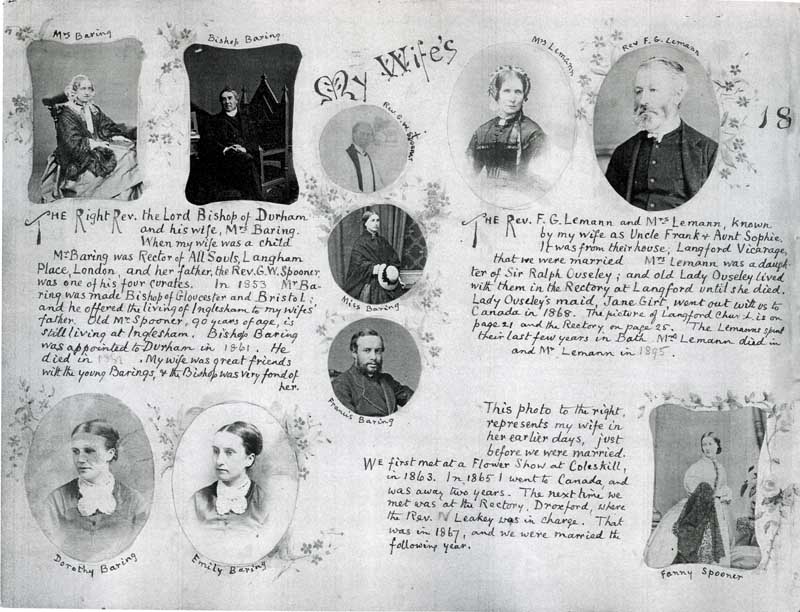 Mrs Baring
Bishop Baring
My Wife's
Rev G. W. Spooner
Mrs Lemann
Rev F. G. Lemann
18
THE Right Rev. the Lord Bishop of Durham
and his wife, Mrs Baring.
When my wife was a child
Mr Baring was Rector of All Souls, Langham
Place, London, and her father, the Rev. G.W. Spooner,
was one of his four curates. In 1853 Mr Ba-
ring was made Bishop of Gloucester and Bristol;
and he offered the living of Inglesham to my wifes'
father. Old Mr Spooner, 90 years of age, is
still living at Inglesham. Bishop Baring
was appointed to Durham in 1861. He
died in . My wife was great friends
with the young Barings, & the Bishop was very fond of
her.
Miss Baring
Francis Baring
Dorothy Baring
Emily Baring
THE Rev. F. G. Lemann and Mrs Lemann, known
by my wife as Uncle Frank & Aunt Sophie.
It was from their house, Langford Vicarage,
that we were married. Mrs Lemann was a daugh-
ter of Sir Ralph Ouseley; and old Lady Ouseley lived
with them in the Rectory at Langford until she died.
Lady Ouseley's maid, Jane Girt, went out with us to
Canada in 1868. The picture of Langford Church is on
page 21 and the Rectory on page 25. The Lemanns spent
their last few years in Bath. Mrs Lemann died in
and Mr Lemann in 1895.
This photo to the right,
represents my wife in
her earlier days, just
before we were married.
WE first met at a Flower Show at Coleskill,
in 1863. In 1865 I went to Canada, and
was away two years. The next time we
met was at the Rectory, Droxford, where
the Rev. N Leakey was in charge. That
was in 1867, and we were married the
following year.
Fanny Spooner